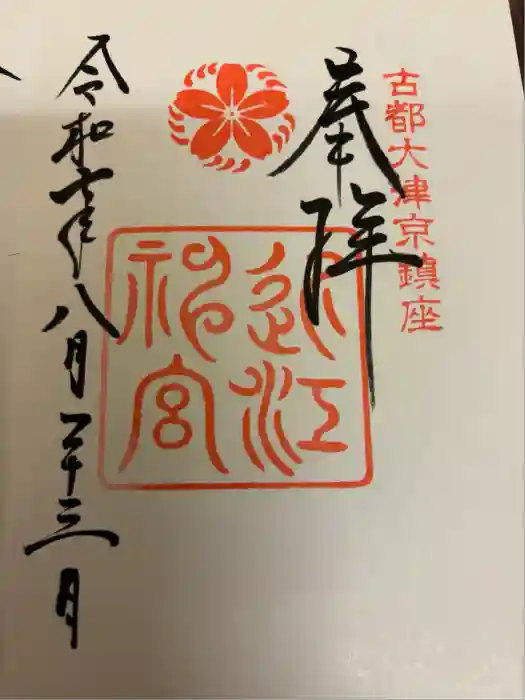 古都大津京鎮座
奉拝
近江
神宮
令和 年八月二十三日